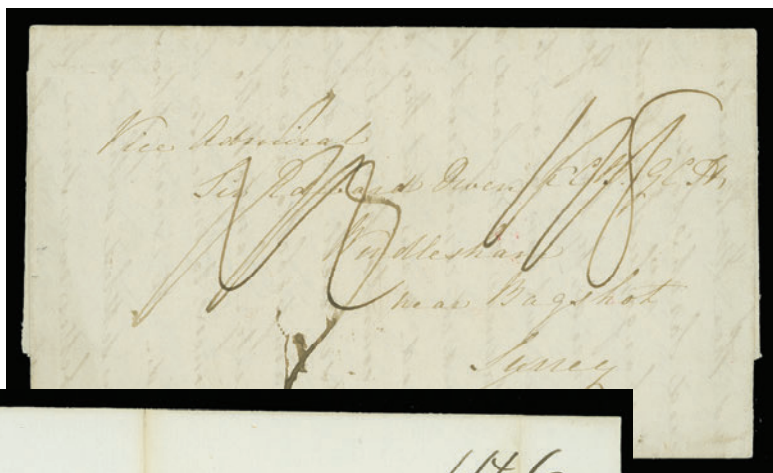 Vice Admiral
Sir Edward Owen KCB. GCH,
Windlesham
near Bagshot
Surrey